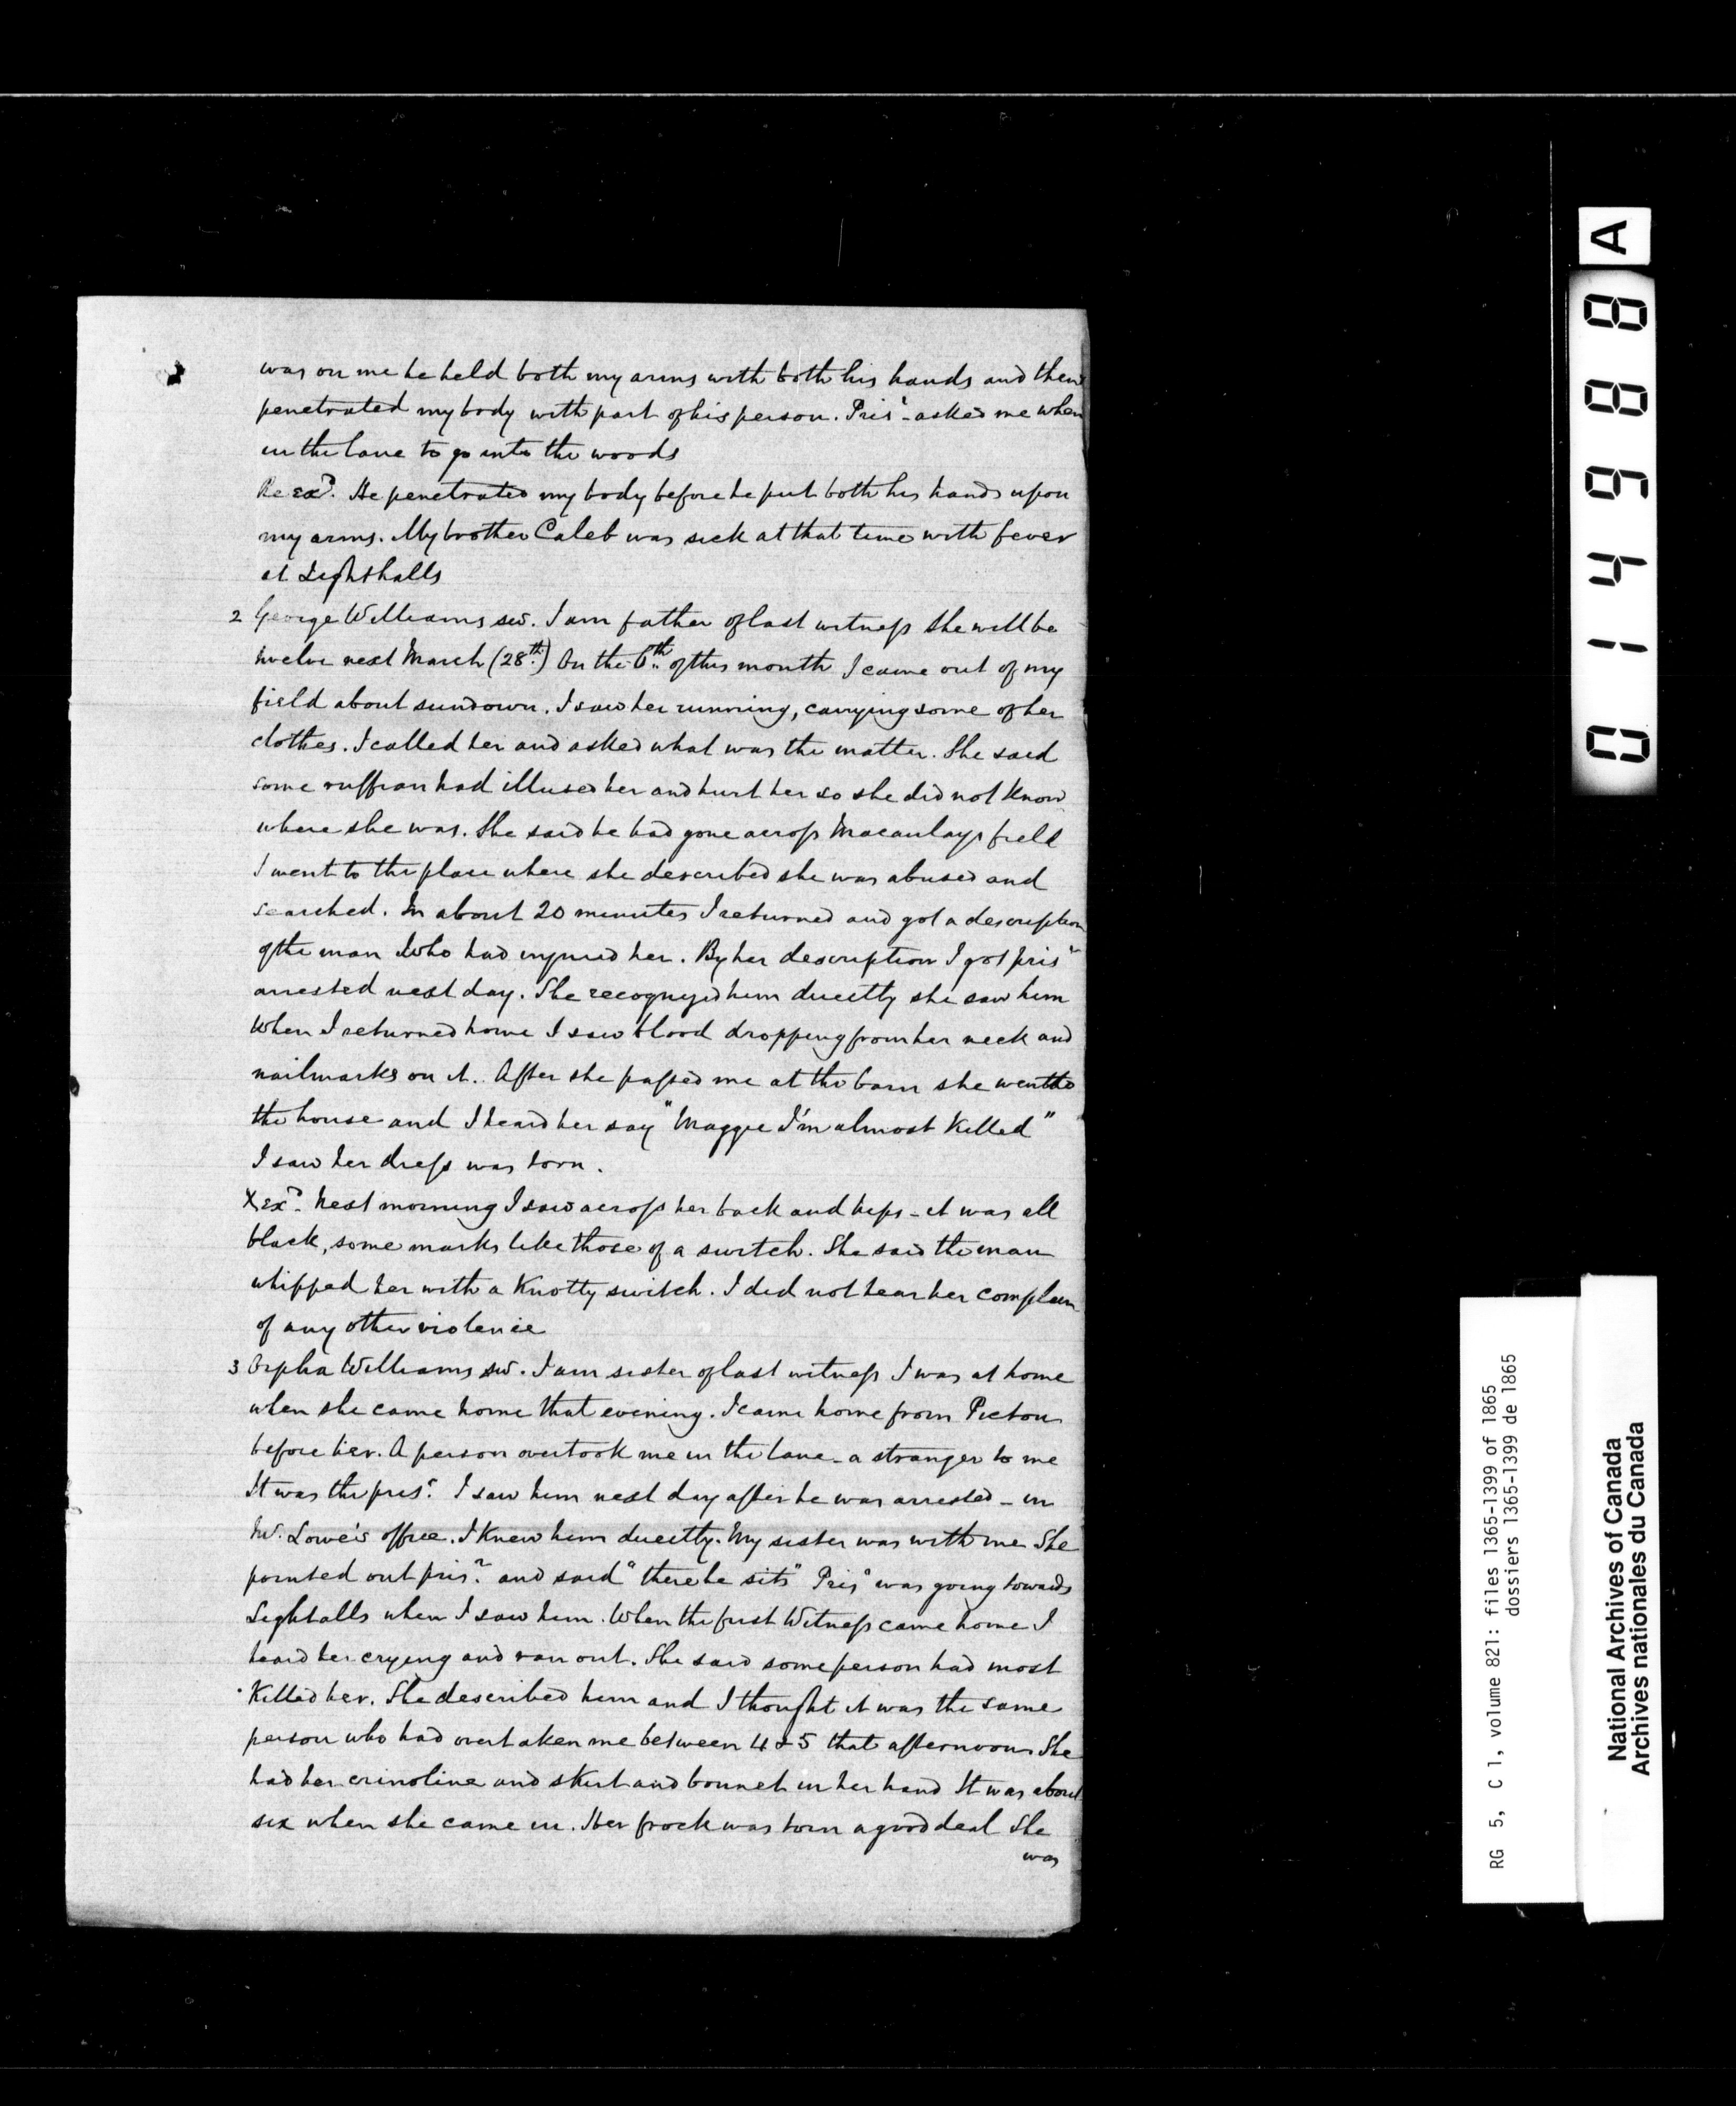 was on me he held both my arms with both his hands and then
penetrated my body with part of his person. Prisr - asked me when
in the lane to go into the woods
Re exd. He penetrated my body before he put both his hands upon
my arms. My brother Caleb was sick at that time with fever
at Lighthalls
2 George Williams sw. I am father of last witness She will be
twelve next March (28th.) On the 6th. of this month I came out of my
field about sundown. I saw her running, carrying some of her
clothes. I called her and asked what was the matter. She said
some ruffian had illused her and hurt her so she did not know
where she was. She said he had gone across Macaulays field
I went to the place where she described she was abused and
searched. In about 20 minutes I returned and got a description
of the man who had injured her. By her description I got prisr
arrested next day. She recognized him directly she saw him
When I returned home I saw blood dropping from her neck and
nailmarks on it. After she passed me at the barn she went to
the house and I heard her say "Maggie I'm almost killed"
I saw her dress was torn.
Xexd. Next morning I saw across her back and hips - it was all
black, some marks like those of a switch. She said the man
whipped her with a knotty switch. I did not hear her complain
of any other violence
3 Orpha Williams sw. I am sister of last witness I was at home
when she came home that evening. I came home from Picton
before her. A person overtook me in the lane - a stranger to me
It was the prisr. I saw him next day after he was arrested - in
Mr. Lowe's office. I knew him directly. My sister was with me She
pointed out prisr. and said "there he sits" Prisr was going towards
Lighthalls when I saw him. When the first Witness came home I
heard her crying and ran out. She said some person had most
killed her. She described him and I thought it was the same
person who had overtaken me between 4 & 5 that afternoon She
had her crinoline and skirt and bonnet in her hand It was about
six when she came in. Her frock was torn a good deal She
was
01498 8 A
RG 5, C 1, volume 821: files 1365-1399 of 1865
dossiers 1365-1399 de 1865
National Archives of Canada
Archives nationales du Canada